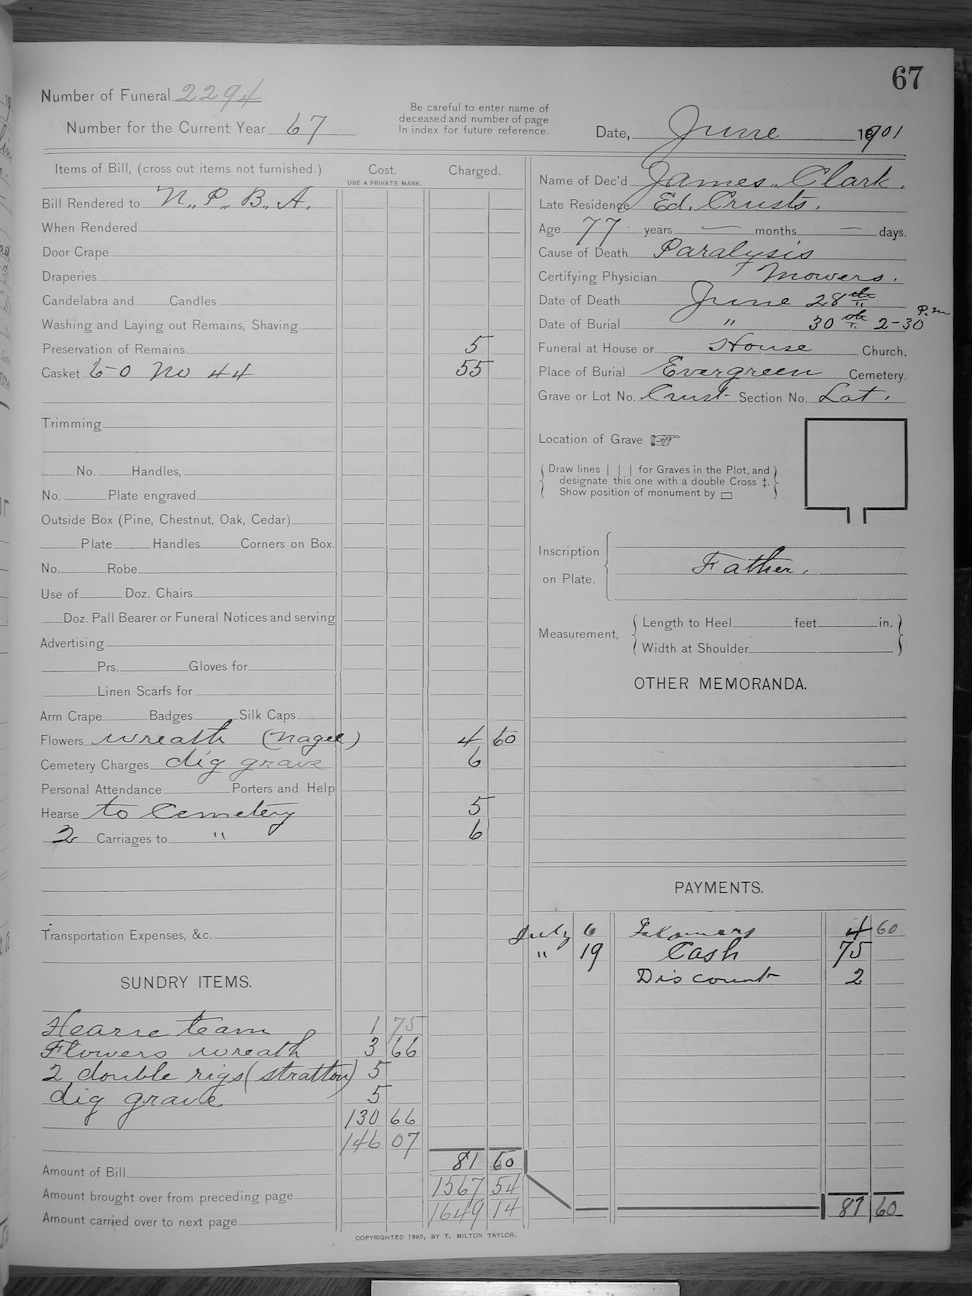 67
Number of Funeral 2294
Number for the Current Year 67
Be careful to enter name of
deceased and number of page
In index for future reference.
Date, June 1901
Items of Bill, (cross out items not furnished.) Cost. Charged.
USE A PRIVATE MARK.
Bill Rendered to N.. P.. B.. A.
When Rendered
Door Crape
Draperies
Candelabra and Candles
Washing and Laying out Remains, Shaving
Preservation of Remains 5
Casket 6-0 No 44 55
Trimming
No. Handles,
No. Plate engraved
Outside Box (Pine, Chestnut, Oak, Cedar)
Plate Handles Corners on Box.
No. Robe
Use of Doz. Chairs
Doz. Pall Bearer or Funeral Notices and serving
Advertising
Prs. Gloves for
Linen Scarfs for
Arm Crape Badges Silk Caps
Flowers wreath (Nagel) 4 60
Cemetery Charges dig grave 6
Personal Attendance Porters and Help
Hearse to Cemetery 5
2 Carriages to " 6
Transportation Expenses, &c.
SUNDRY ITEMS.
Hearse team 1 75
Flowers wreath 3 66
2 double rigs (stratton) 5
dig grave 5
130 66
146 07
Amount of Bill 81 60
Amount brought over from preceding page 1567 54
Amount carried over to next page 1649 14
COPYRIGHTED 1890, BY T. MILTON TAYLOR.
Name of Dec'd James.. Clark.
Late Residence Ed. Crusts.
Age 77 years — months — days.
Cause of Death Paralysis
Certifying Physician Mowers.
Date of Death June 28th
Date of Burial " 30th 2-30 P.m
Funeral at House or House Church,
Place of Burial Evergreen Cemetery.
Grave or Lot No. Crust Section No. Lot.
Location of Grave ☞
Draw lines | | | for Graves in the Plot, and
designate this one with a double Cross ‡.
Show position of monument by ▭
Inscription
on Plate.
Father.
Measurement,
Length to Heel feet in.
Width at Shoulder
OTHER MEMORANDA.
PAYMENTS.
July 6 4 60
" 19 Cash 75
Discount 2
81 60